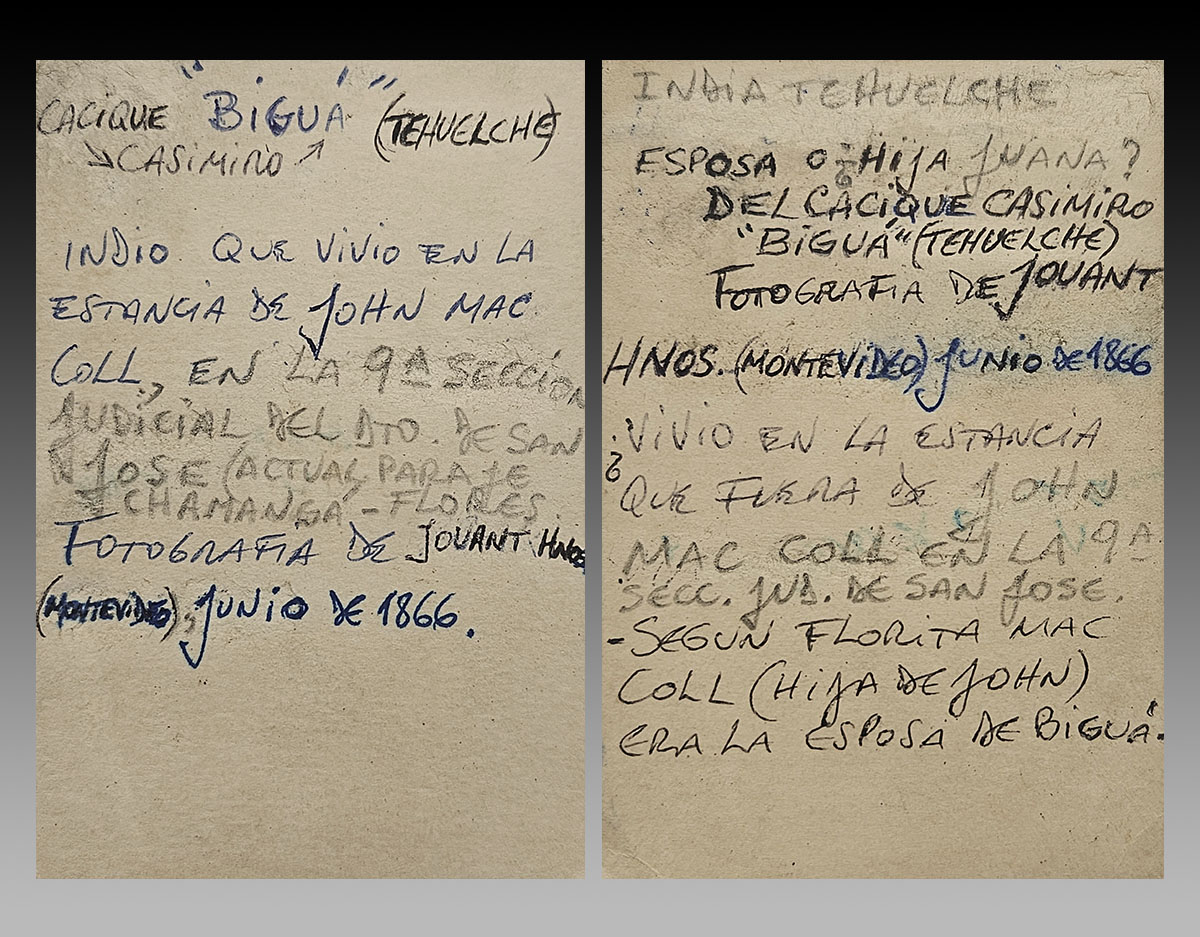 CACIQUE "BIGUÁ" (TEHUELCHE)
CASIMIRO
INDIO QUE VIVIO EN LA
ESTANCIA DE JOHN MAC
COLL, EN LA 9ª SECCION
JUDICIAL DEL DTO. DE SAN
JOSE (ACTUAL PARAJE
CHAMANGÁ - FLORES.
FOTOGRAFIA DE JOUANT HNOS
(MONTEVIDEO), JUNIO DE 1866.
INDIA TEHUELCHE
ESPOSA O ¿HIJA JUANA?
DEL CACIQUE CASIMIRO
"BIGUÁ" (TEHUELCHE)
FOTOGRAFIA DE JOUANT
HNOS. (MONTEVIDEO) JUNIO DE 1866
¿VIVIO EN LA ESTANCIA
QUE FUERA DE JOHN
MAC COLL EN LA 9ª
SECC. JUD. DE SAN JOSE.
-SEGUN FLORITA MAC
COLL (HIJA DE JOHN)
ERA LA ESPOSA DE BIGUÁ.